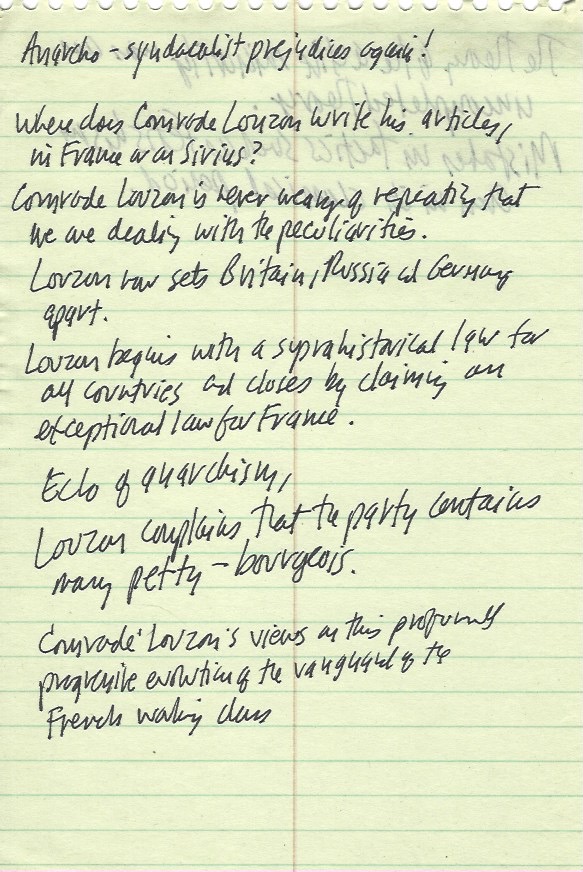 Anarcho-syndacalist prejudices again!
Where does Comrade Louzon write his articles,
in France or on Sirius?
Comrade Louzon is never weary of repeating that
we are dealing with the peculiarities.
Louzon now sets Britain, Russia and Germany
apart.
Louzon begins with a suprahistorical law for
all countries and closes by claiming an
exceptional law for France.
Echo of anarchism,
Louzon complains that the party contains
many petty-bourgeois.
Comrade Louzon's views on this profoundly
progressive evolution of the vanguard of the
French working class